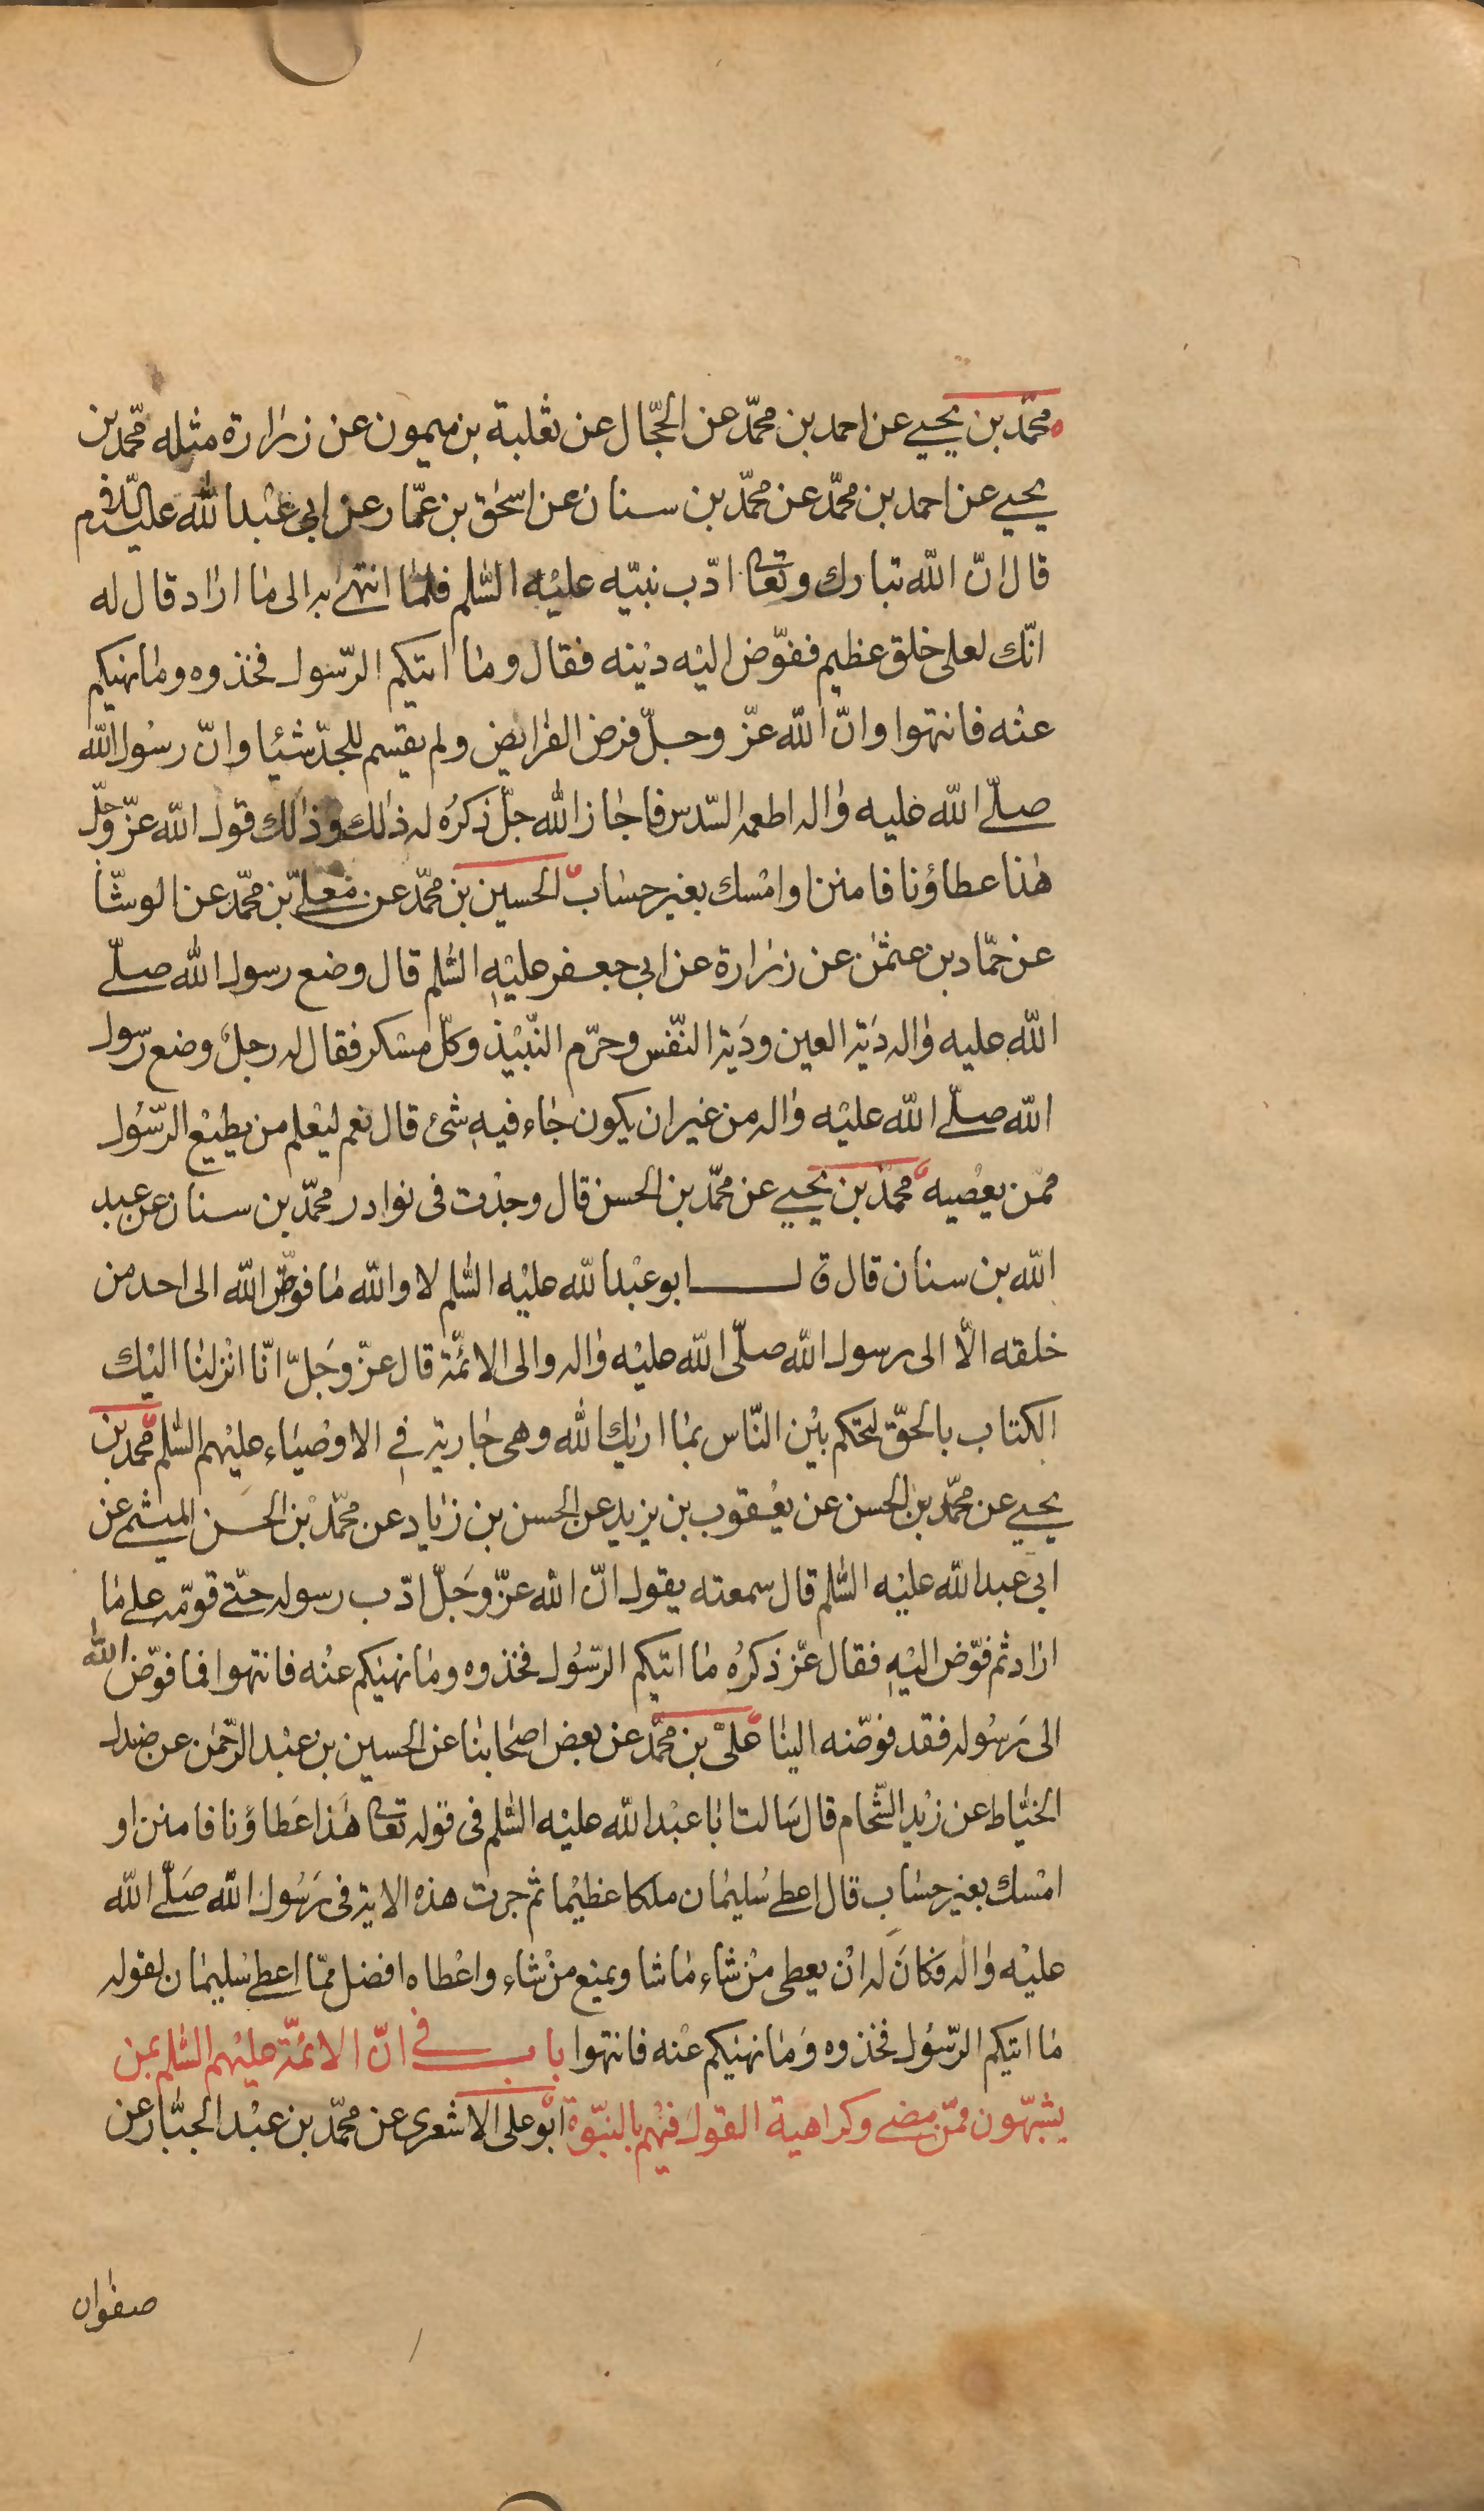 محمّد بن يحيى عن احمد بن محمّد عن الحجّال عن ثعلبة بن ميمون عن زرارة مثله محمّد بن
يحيى عن احمد بن محمّد عن محمّد بن سنان عن اسحٰق بن عمّار عن ابي عبد الله عليه السّلام
قال انّ الله تبارك وتعا ادّب نبيّه عليه السّلم فلمّا انتهى به الى ما اراد قال له
انّك لعلى خلق عظيم ففوّض اليه دينه فقال وما اتيكم الرّسول فخذوه وما نهيكم
عنه فانتهوا وانّ الله عزّ وجلّ فرض الفرايض ولم يقسم للجدّ شيئا وانّ رسول الله
صلّى الله عليه واله اطعمه السّدس فاجاز الله جلّ ذكره له ذلك وذلك قول الله عزّ وجلّ
هذا عطاؤنا فامنن او امسك بغير حساب الحسين بن محمّد عن معلّى بن محمّد عن الوشّا
عن حمّاد بن عثمٰن عن زرارة عن ابي جعفر عليه السّلم قال وضع رسول الله صلّى
الله عليه واله دية العين ودية النّفس وحرّم النّبيذ وكلّ مسكر فقال له رجل وضع رسول
الله صلّى الله عليه واله من غير ان يكون جاء فيه شئ قال نعم ليعلم من يطيع الرّسول
ممّن يعصيه محمّد بن يحيى عن محمّد بن الحسن قال وجدت في نوادر محمّد بن سنان عن عبد
الله بن سنان قال قال ابو عبد الله عليه السّلم لا والله ما فوّض الله الى احد من
خلقه الّا الى رسول الله صلّى الله عليه واله والى الائمّة قال عزّ وجلّ انّا انزلنا اليك
الكتاب بالحقّ لتحكم بين النّاس بما اريك الله وهي جارية في الاوصياء عليهم السّلم محمّد بن
يحيى عن محمّد بن الحسن عن يعقوب بن يزيد عن الحسن بن زياد عن محمّد بن الحسن الميثمي عن
ابي عبد الله عليه السّلم قال سمعته يقول انّ الله عزّ وجلّ ادّب رسوله حتّى قوّمه على ما
اراد ثم فوّض اليه فقال عزّ ذكره ما اتيكم الرّسول فخذوه وما نهيكم عنه فانتهوا فما فوّض الله
الى رسوله فقد فوّضه الينا علىّ بن محمّد عن بعض اصحابنا عن الحسين بن عبد الرّحمٰن عن صندل
الخيّاط عن زيد الشّحام قال سالت ابا عبد الله عليه السّلم في قوله تعا هذا عطاؤنا فامنن او
امسك بغير حساب قال اعطى سليمان ملكا عظيما ثم جرت هذه الاية في رسول الله صلّى الله
عليه واله فكان له ان يعطى من شاء ما شا ويمنع من شاء واعطاه افضل ممّا اعطى سليمان لقوله
ما اتيكم الرّسول فخذوه وما نهيكم عنه فانتهوا باب في انّ الائمّة عليهم السّلم بمن
يشبهون ممّن مضى وكراهية القول فيهم بالنبّوة ابو على الاشعرى عن محمّد بن عبد الجبّار عن
صفوان